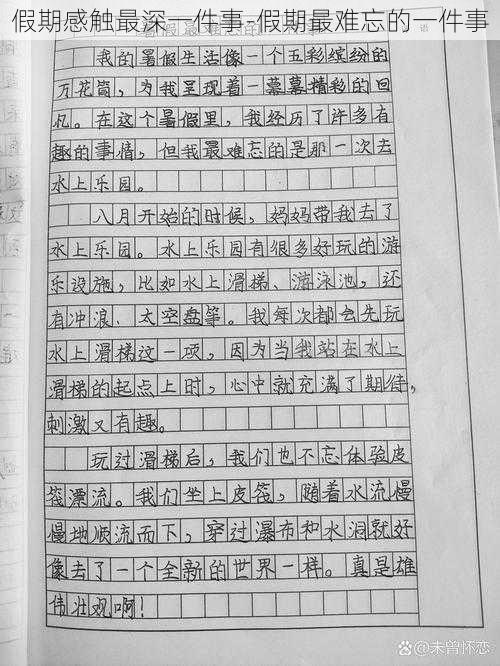 假期感触最深一件事-假期最难忘的一件事
我的暑假生活像一个五彩缤纷的
万花筒，为我呈现着一幕幕精彩的回
忆。在这个暑假里，我经历了许多有
趣的事情，但我最难忘的是那一次去
水上乐园。
八月开始的时候，妈妈带我去了
水上乐园。水上乐园有很多好玩的游
乐设施，比如水上滑梯、游泳池，还
有冲浪、太空盘等。我每次都会先玩
水上滑梯这一项，因为当我站在水上
滑梯的起点上时，心中就充满了期待，
刺激又有趣。
玩过滑梯后，我们也不忘体验皮
筏漂流。我们坐上皮筏，随着水流慢
慢地顺流而下，穿过瀑布和水洞就好
像去了一个全新的世界一样。真是雄
伟壮观啊！
未曾怀恋